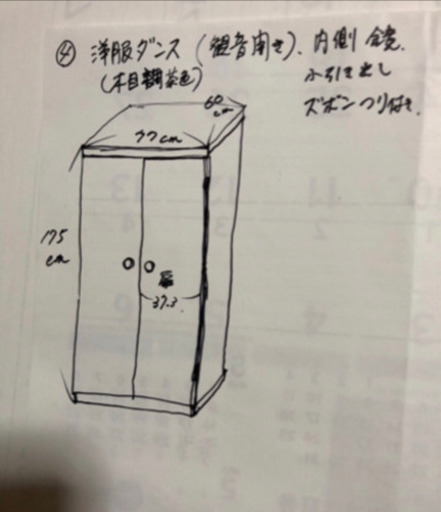 ④ 洋服ダンス (観音開き). 内側 鏡.
(木目調茶色)
小引き出し
ズボンつり付き.
60
cm
77cm
175
cm
扉
37.3